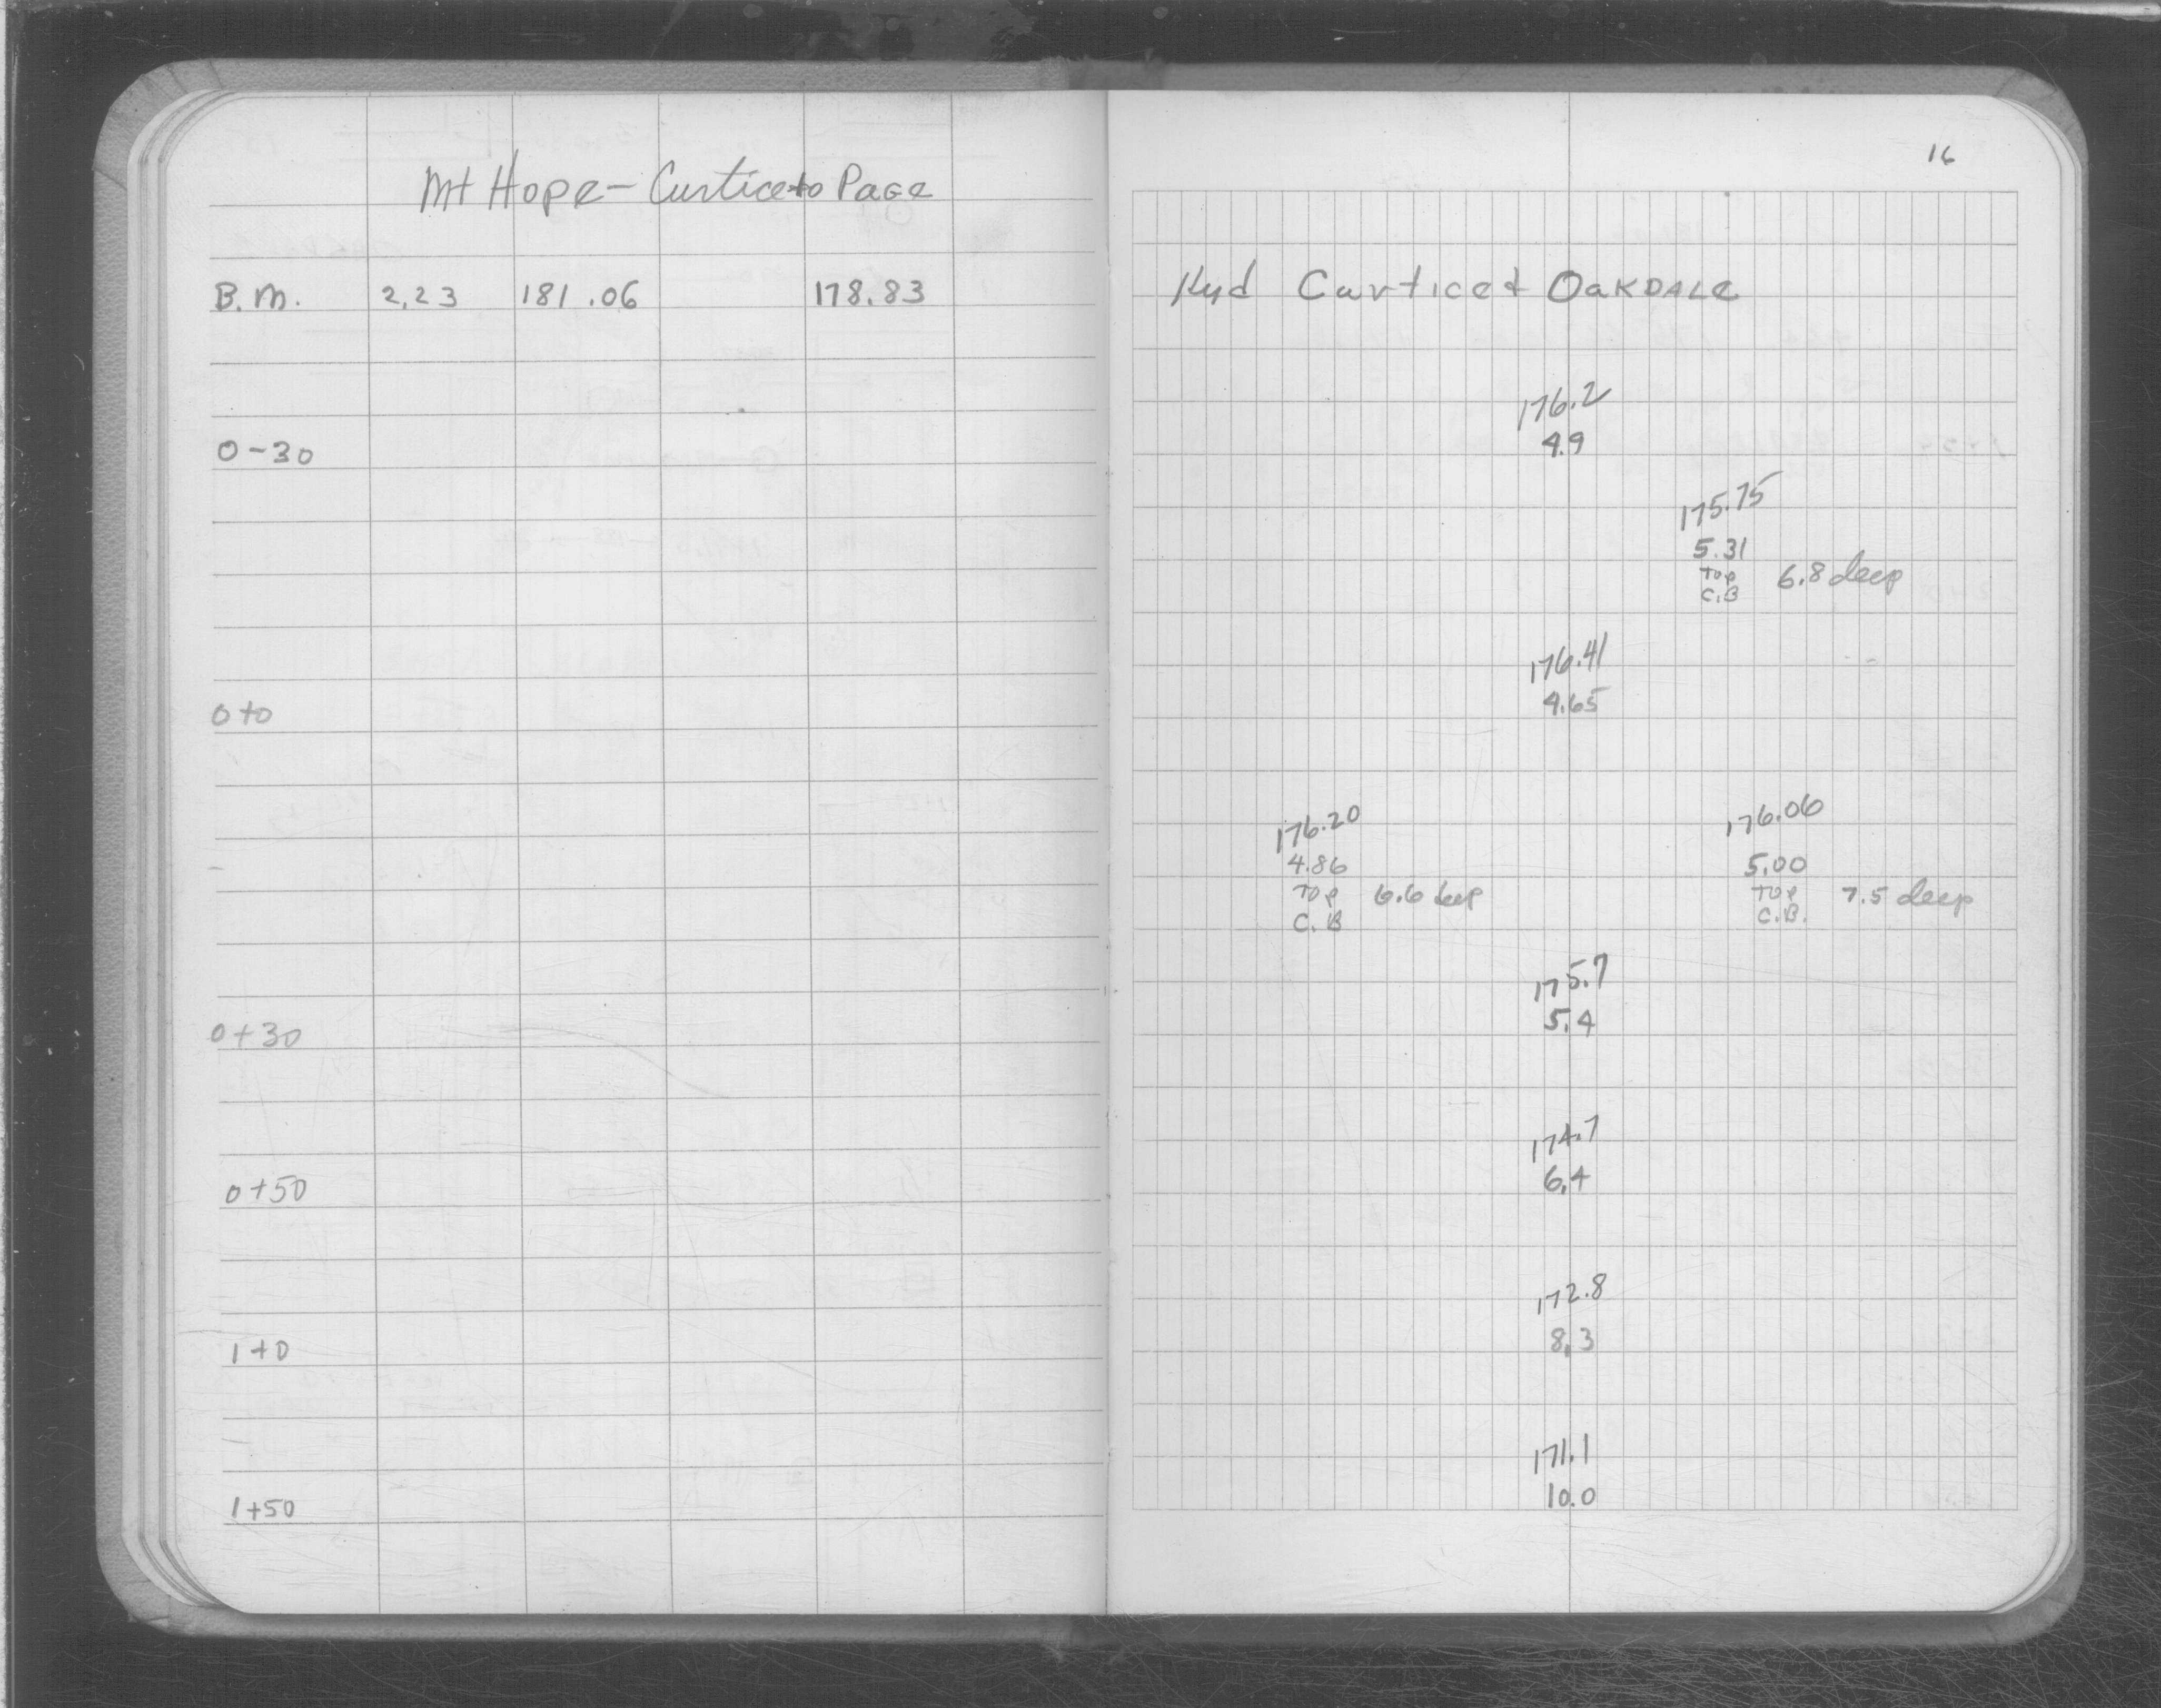 16
Mt Hope - Curtice to Page
B.M. 2.23 181.06 178.83 Hyd Curtice & OAKDALE
176.2
0-30 4.9
175.75
5.31
Top 6.8 deep
C.B
176.41
0+0 4.65
176.20 176.06
4.86 5.00
Top 6.6 deep Top 7.5 deep
C.B C.B.
175.7
0+30 5.4
174.7
0+50 6.4
172.8
1+0 8.3
171.1
1+50 10.0